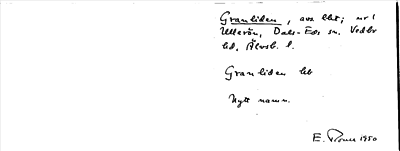 Granliden, avs lht; nr 1
Ullerön, Dals-Eds sn. Vedbo
hd. Älvsb. l.
Granliden lht
Nytt namn.
E. 1950